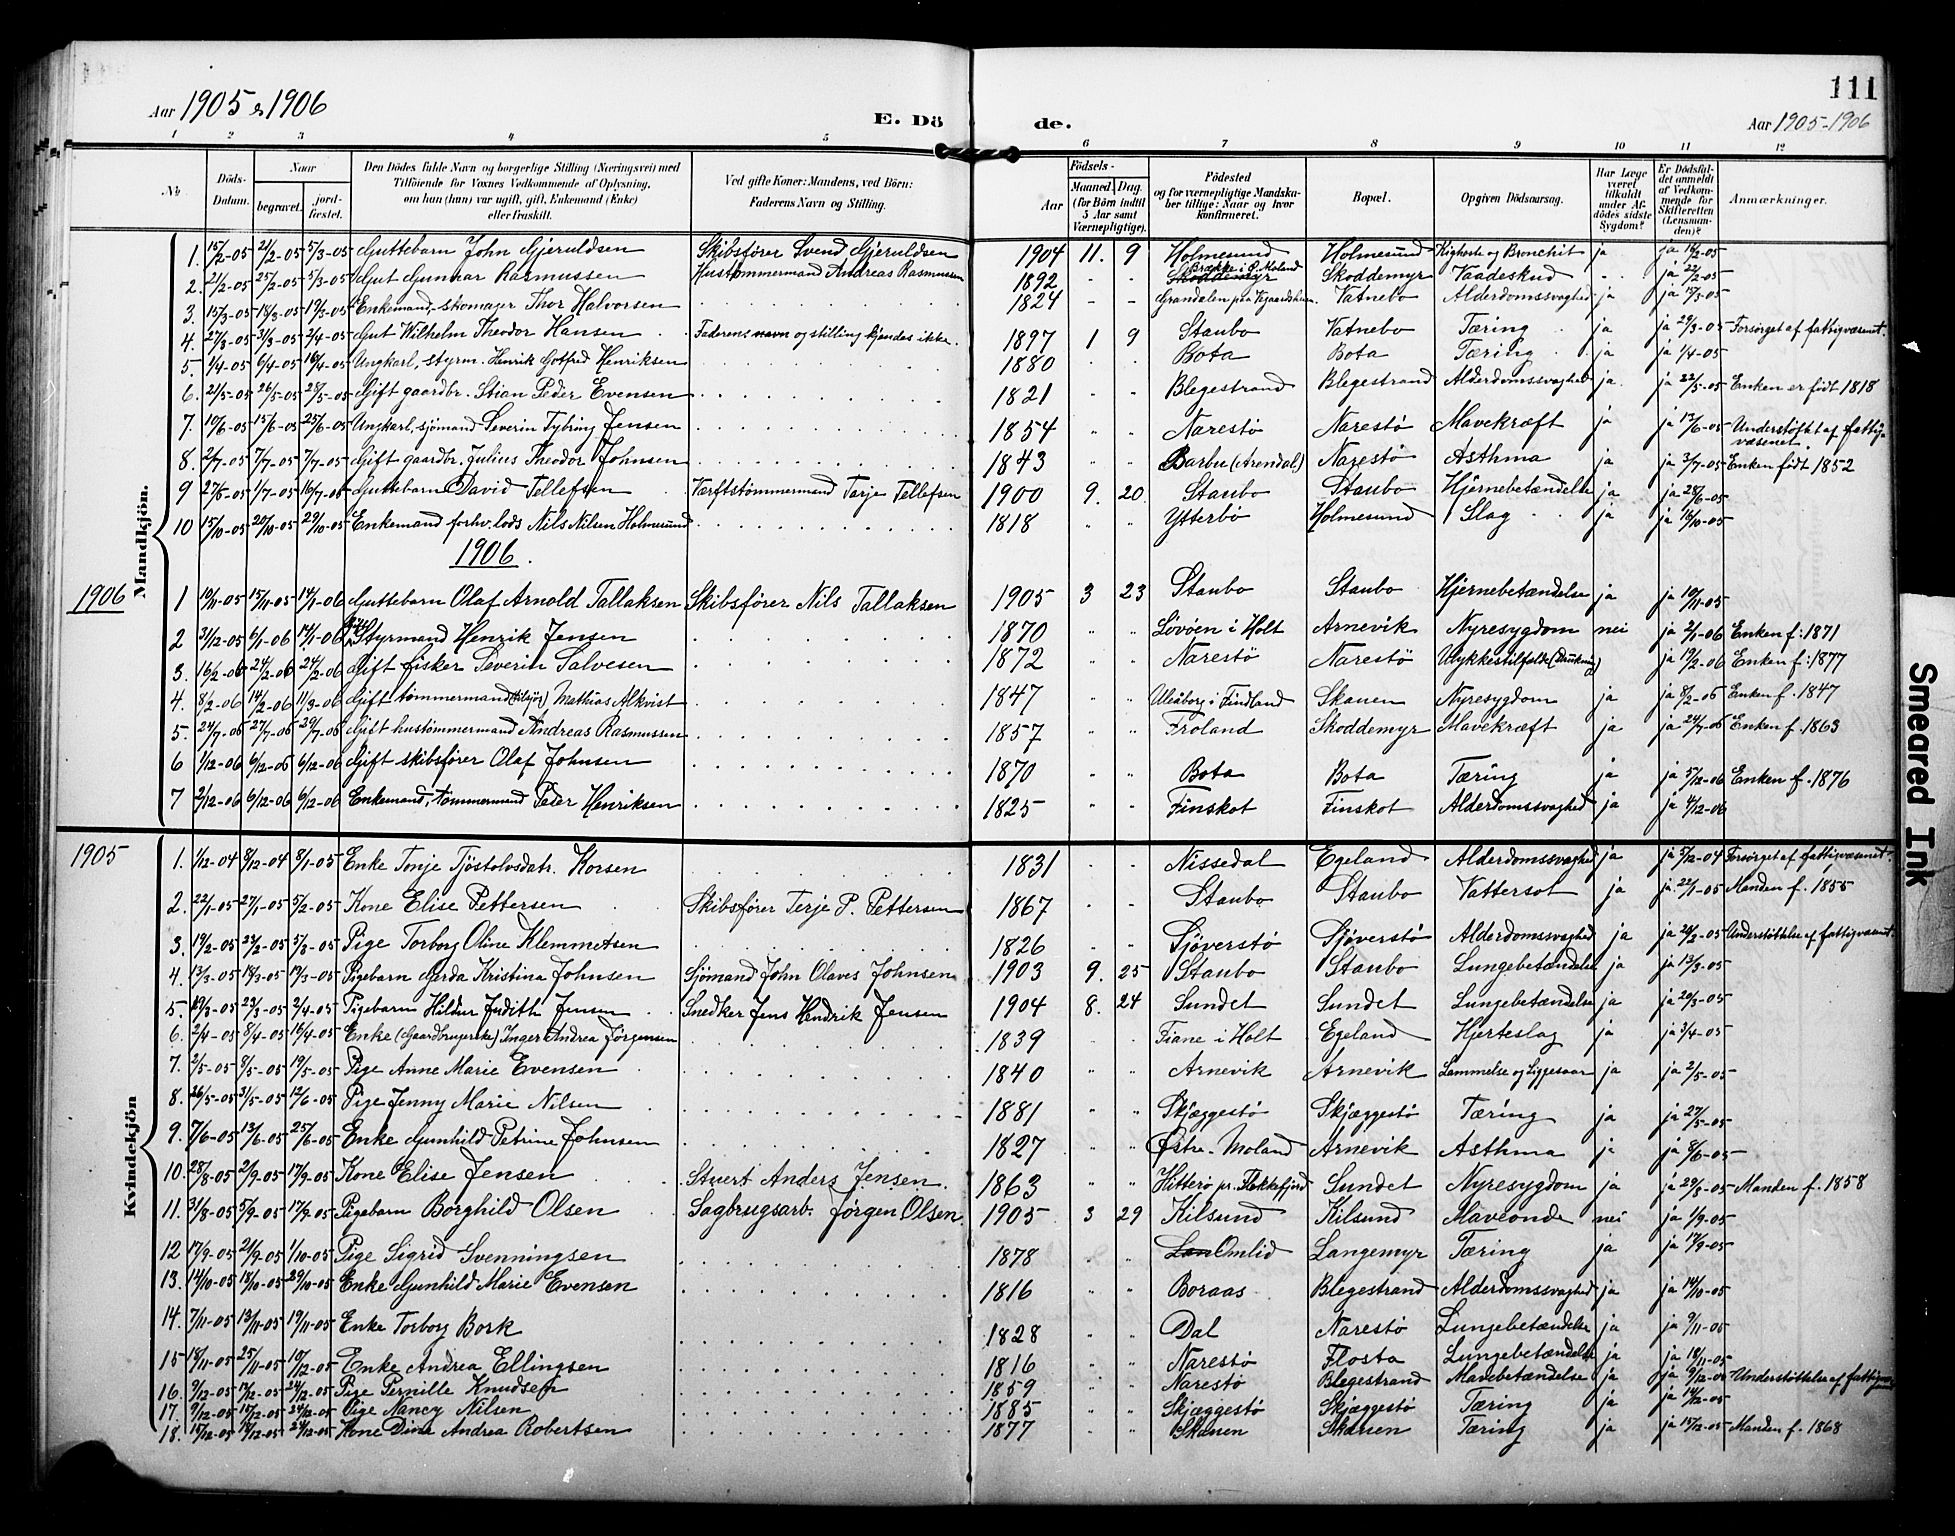 111
Aar 1905 & 1906
E. Dö de.
Aar 1905-1906
1 2 3 4 5 6 7 8 9 10 11 12
No
Döds-Datum.
Naar
begravet.
jord-fæstet.
Den Dödes fulde Navn og borgerlige Stilling (Næringsvei) med
Tilföiende for Voxnes Vedkommende af Oplysning,
om han (hun) var ugift, gift, Enkemand (Enke)
eller fraskilt.
Ved gifte Koner: Mandens, ved Börn:
Faderens Navn og Stilling.
Födsels-
Aar
Maaned. Dag.
(for Börn indtil
5 Aar samt
Værnepligtige).
Födested
og for værnepligtige Mandska-
ber tillige: Naar og hvor
konfirmeret.
Bopæl.
Opgiven Dödsaarsag.
Har Læge
været
tilkaldt
under Af-
dödes sidste
Sygdom?
Er Dödsfal-
det anmeldt
af Vedkom-
mende for
Skifteretten
(Lensman-
den)?
Anmærkninger.
Mandkjön.
1. 15/2-05 21/2-05 5/3-05 Guttebarn John Gjeruldsen Skibsfører Svend Gjeruldsen 1904 11. 9 Holmesund Holmesund Kighoste og Bronchit ja ja 16/2-05
2. 21/2-05 25/2-05 5/3-05 Gut Gunnar Rasmussen Hustømmermand Andreas Rasmussen 1892 Brække i Ø. Moland Skoddemyr Skoddemyr Vaadeskud ja 22/2-05
3. 15/3-05 18/3-05 19/3-05 Enkemand, skomager Thor Halvorsen 1824 Vatnebo Alderdomssvaghed ja ja 17/3-05
4. 27/3-05 31/3-05 2/4-05 Gut Wilhelm Theodor Hansen Faderens navn og stilling kjendes ikke. 1897 1 9 Staubo Vatnebo Tæring ja ja 29/3-05 Forsørget af fattigvæsenet.
5. 1/4-05 6/4-05 16/4-05 Ungkarl, styrm. Henrik Gotfred Henriksen 1880 Bota Bota Tæring ja ja 1/4-05
6. 21/5-05 26/5-05 28/5-05 Gift gaardbr. Stian Peder Evensen 1821 Blegestrand Blegestrand Alderdomssvaghed ja. ja 22/5-05 Enken er født 1818
7. 10/6-05 15/6-05 25/6-05 Ungkarl, sjömand Severin Tybring Jensen 1854 Narestö Narestö Mavekræft ja ja 13/6-05 Understöttet af fattig-
væsenet.
8. 2/7-05 7/7-05 7/7-05 Gift gaardbr. Julius Theodor Johnsen 1843 Barbu (Arendal) Narestö Asthma ja ja 3/7-05 Enken født 1852
9 27/6-05 1/7-05 16/7-05 Guttebarn David Tellefsen Værftstömmermand Tarje Tellefsen 1900 9. 20 Staubo Staubo Hjernebetændelse ja ja 28/6-05
10 15/10-05 20/10-05 29/10-05 Enkemand forhv. lods Nils Nilsen Holmesund 1818 Ytterbö Holmesund Slag ja ja 16/10-05
1906.
1906
1 10/11-05 15/11-05 14/1-06 Guttebarn Olaf Arnold Tallaksen Skibsfører Nils Tallaksen 1905 3 23 Staubo Staubo Hjernebetændelse ja ja 10/11-05
2 31/12-05 6/1-06 14/1-06 gift Styrmand Henrik Jensen 1870 Lövöen i Holt Arnevik Nyresygdom nei ja 2/1-06 Enken f: 1871
3. 16/2-06 24/2-06 24/2-06 Gift fisker Severin Salvesen 1872 Narestö Narestö Ulykkestilfælde (Drukning) ja 19/2-06 Enken f: 1877
4. 8/2-06 14/2-06 11/3-06 Gift tømmermand Mathias Alkvist 1847 Uleåborg i Findland Skanen Nyresygdom ja ja 8/2-06 Enken f. 1847
5. 24/7-06 27/7-06 29/7-06 Gift hustømmermand Andreas Rasmussen 1857 Froland Skoddemyr Mavekræft ja ja 24/7-06 Enken f. 1863
6 1/12-06 6/12-06 6/12-06 Gift skibsfører Olaf Johnsen 1870 Bota Bota Tæring ja ja 5/12-06 Enken f. 1876
7 2/12-06 6/12-06 6/12-06 Enkemand, tømmermand Peder Henriksen 1825 Finskot Finskot Alderdomssvaghed ja ja 4/12-06
1905
Kvindekjön
1. 1/12-04 8/12-04 8/1-05 Enke Tonje Tjöstolvsdatr. Korsen 1831 Nissedal Egeland Alderdomssvaghed ja ja 5/12-04 Forsørget af fattigvæsenet.
2. 22/1-05 27/1-05 5/2-05 Kone Elise Pettersen Skibsfører Terje P. Pettersen 1867 Staubo Staubo Vattersot ja ja 22/1-05 Manden f. 1855
3. 19/2-05 23/2-05 5/3-05 Pige Torborg Oline Klemmetsen 1826 Sjöverstö Sjöverstö Alderdomssvaghed ja ja 20/2-05 Understöttelse af fattigvæsenet.
4. 13/3-05 18/3-05 19/3-05 Pigebarn Gerda Kristina Johnsen Sjömand John Olaves Johnsen 1903 9. 25 Staubo Staubo Lungebetændelse ja ja 13/3-05
5. 19/3-05 23/3-05 2/4-05 Pigebarn Hildur Judith Jensen Snedker Jens Hendrik Jensen 1904 8. 24 Sundet Sundet Lungebetændelse ja ja 20/3-05
6. 2/4-05 8/4-05 16/4-05 Enke (Gaardbrugerske) Inger Andrea Jörgensen 1839 Fiane i Holt Egeland Hjerteslag ja ja 3/4-05
7. 2/5-05 8/5-05 19/5-05 Pige Anne Marie Evensen 1840 Arnevik Arnevik Lammelse og Liggesaar ja ja 2/5-05
8. 26/5-05 31/5-05 12/6-05 Pige Jenny Marie Nilsen 1881 Skjæggestö Skjæggestö Tæring ja ja 27/5-05
9. 7/6-05 13/6-05 25/6-05 Enke Gunhild Petrine Johnsen 1827 Østre-Moland Arnevik Asthma ja ja 8/6-05
10. 28/8-05 2/9-05 17/9-05 Kone Elise Jensen Stuert Anders Jensen. 1863 Hitterö pr. Flekkefjord Sundet Nyresygdom ja ja 29/8-05 Manden f. 1858
11. 31/8-05 5/9-05 17/9-05 Pigebarn Borghild Olsen Sagbrugsarb. Jörgen Olsen 1905 3 29 Kilsund Kilsund Maveonde nei ja 1/9-05
12 17/9-05 21/9-05 1/10-05 Pige Sigrid Svenningsen 1878 Lan Omlid Langemyr Tæring ja ja 17/9-05
13. 14/10-05 18/10-05 29/10-05 Enke Gunhild Marie Evensen 1816 Boraas Blegestrand Alderdomssvaghed ja ja 14/10-05
14. 7/11-05 13/11-05 19/11-05 Enke Torborg Bork 1828 Dal Narestö Lungebetændelse ja ja 9/11-05
15 18/11-05 25/11-05 10/12-05 Enke Andrea Ellingsen 1816 Narestö Flosta Lungebetændelse ja ja 18/11-05
16. 9/12-05 Pige Pernille Knudsen 1859 Narestö Blegestrand Mavebetændelse ja ja Understöttelse af
17. 9/12-05 17/12-05 24/12-05 Pige Nancy Nilsen 1885 Skjæggestö Skjæggestö Tæring ja ja 14/12-05
18. 24/12-05 Kone Dina Andrea Robertsen 1877 Skanen Skanen Tæring ja ja 15/12-05 Manden f. 1868
Smeared Ink